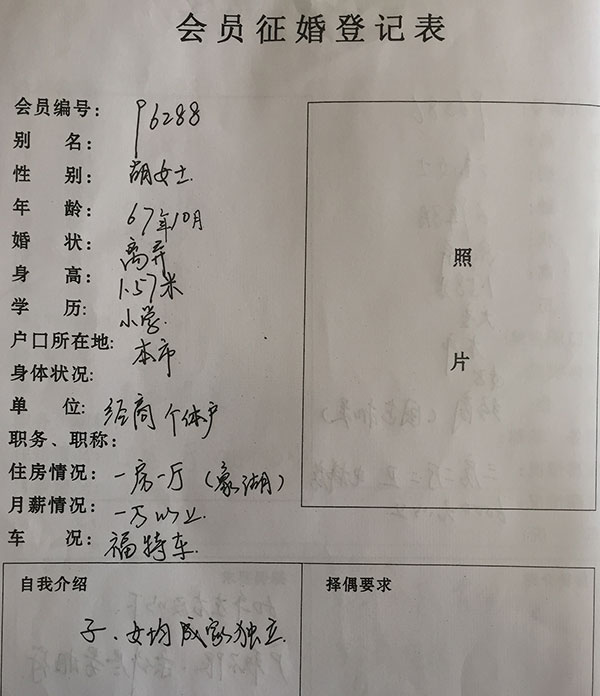 会员征婚登记表
会员编号: P6288
别 名:
性 别: 胡女士
年 龄: 67年10月
婚 状: 离异
身 高: 1.57米
学 历: 小学
户口所在地: 本市
身体状况:
单 位: 经商 个体户
职务、职称:
住房情况: 一房一厅(象湖)
月薪情况: 一万以上
车 况: 福特车
照
片
自我介绍
子、女均成家独立
择偶要求